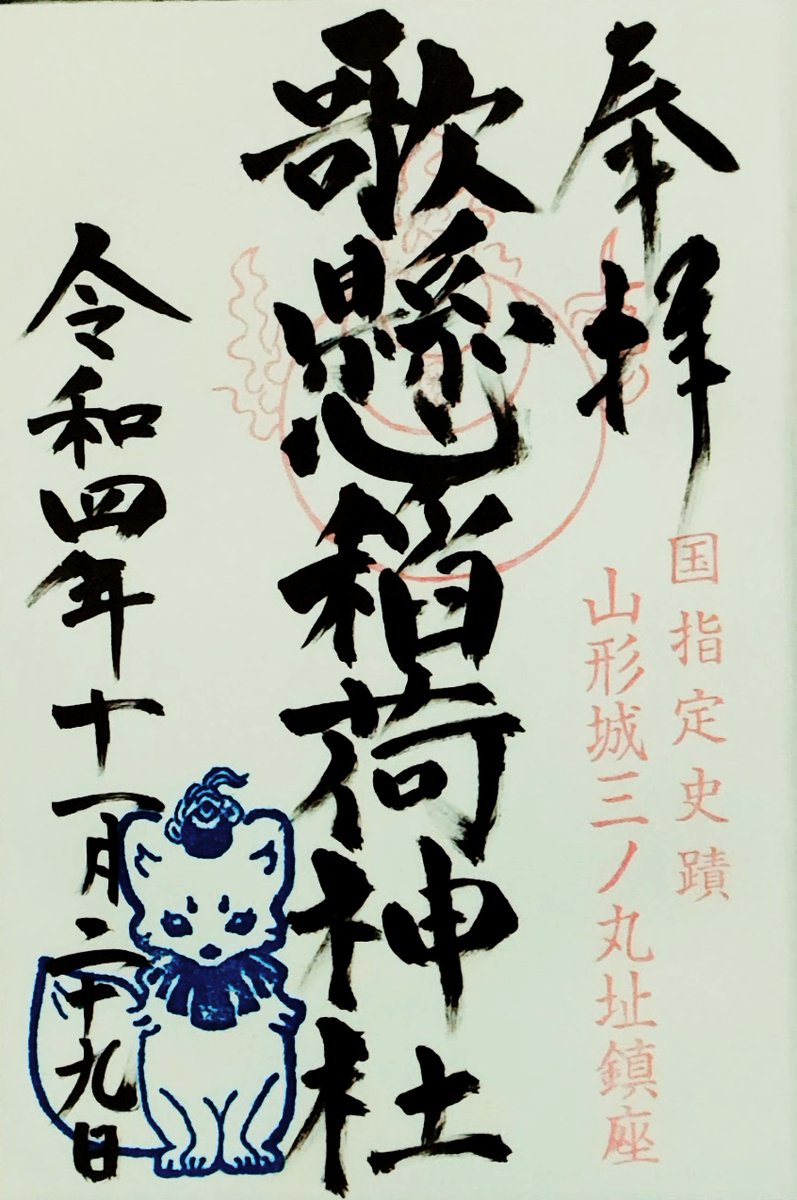 奉拝
国指定史蹟
山形城三ノ丸址鎮座
歌懸稲荷神社
令和四年十一月二十九日